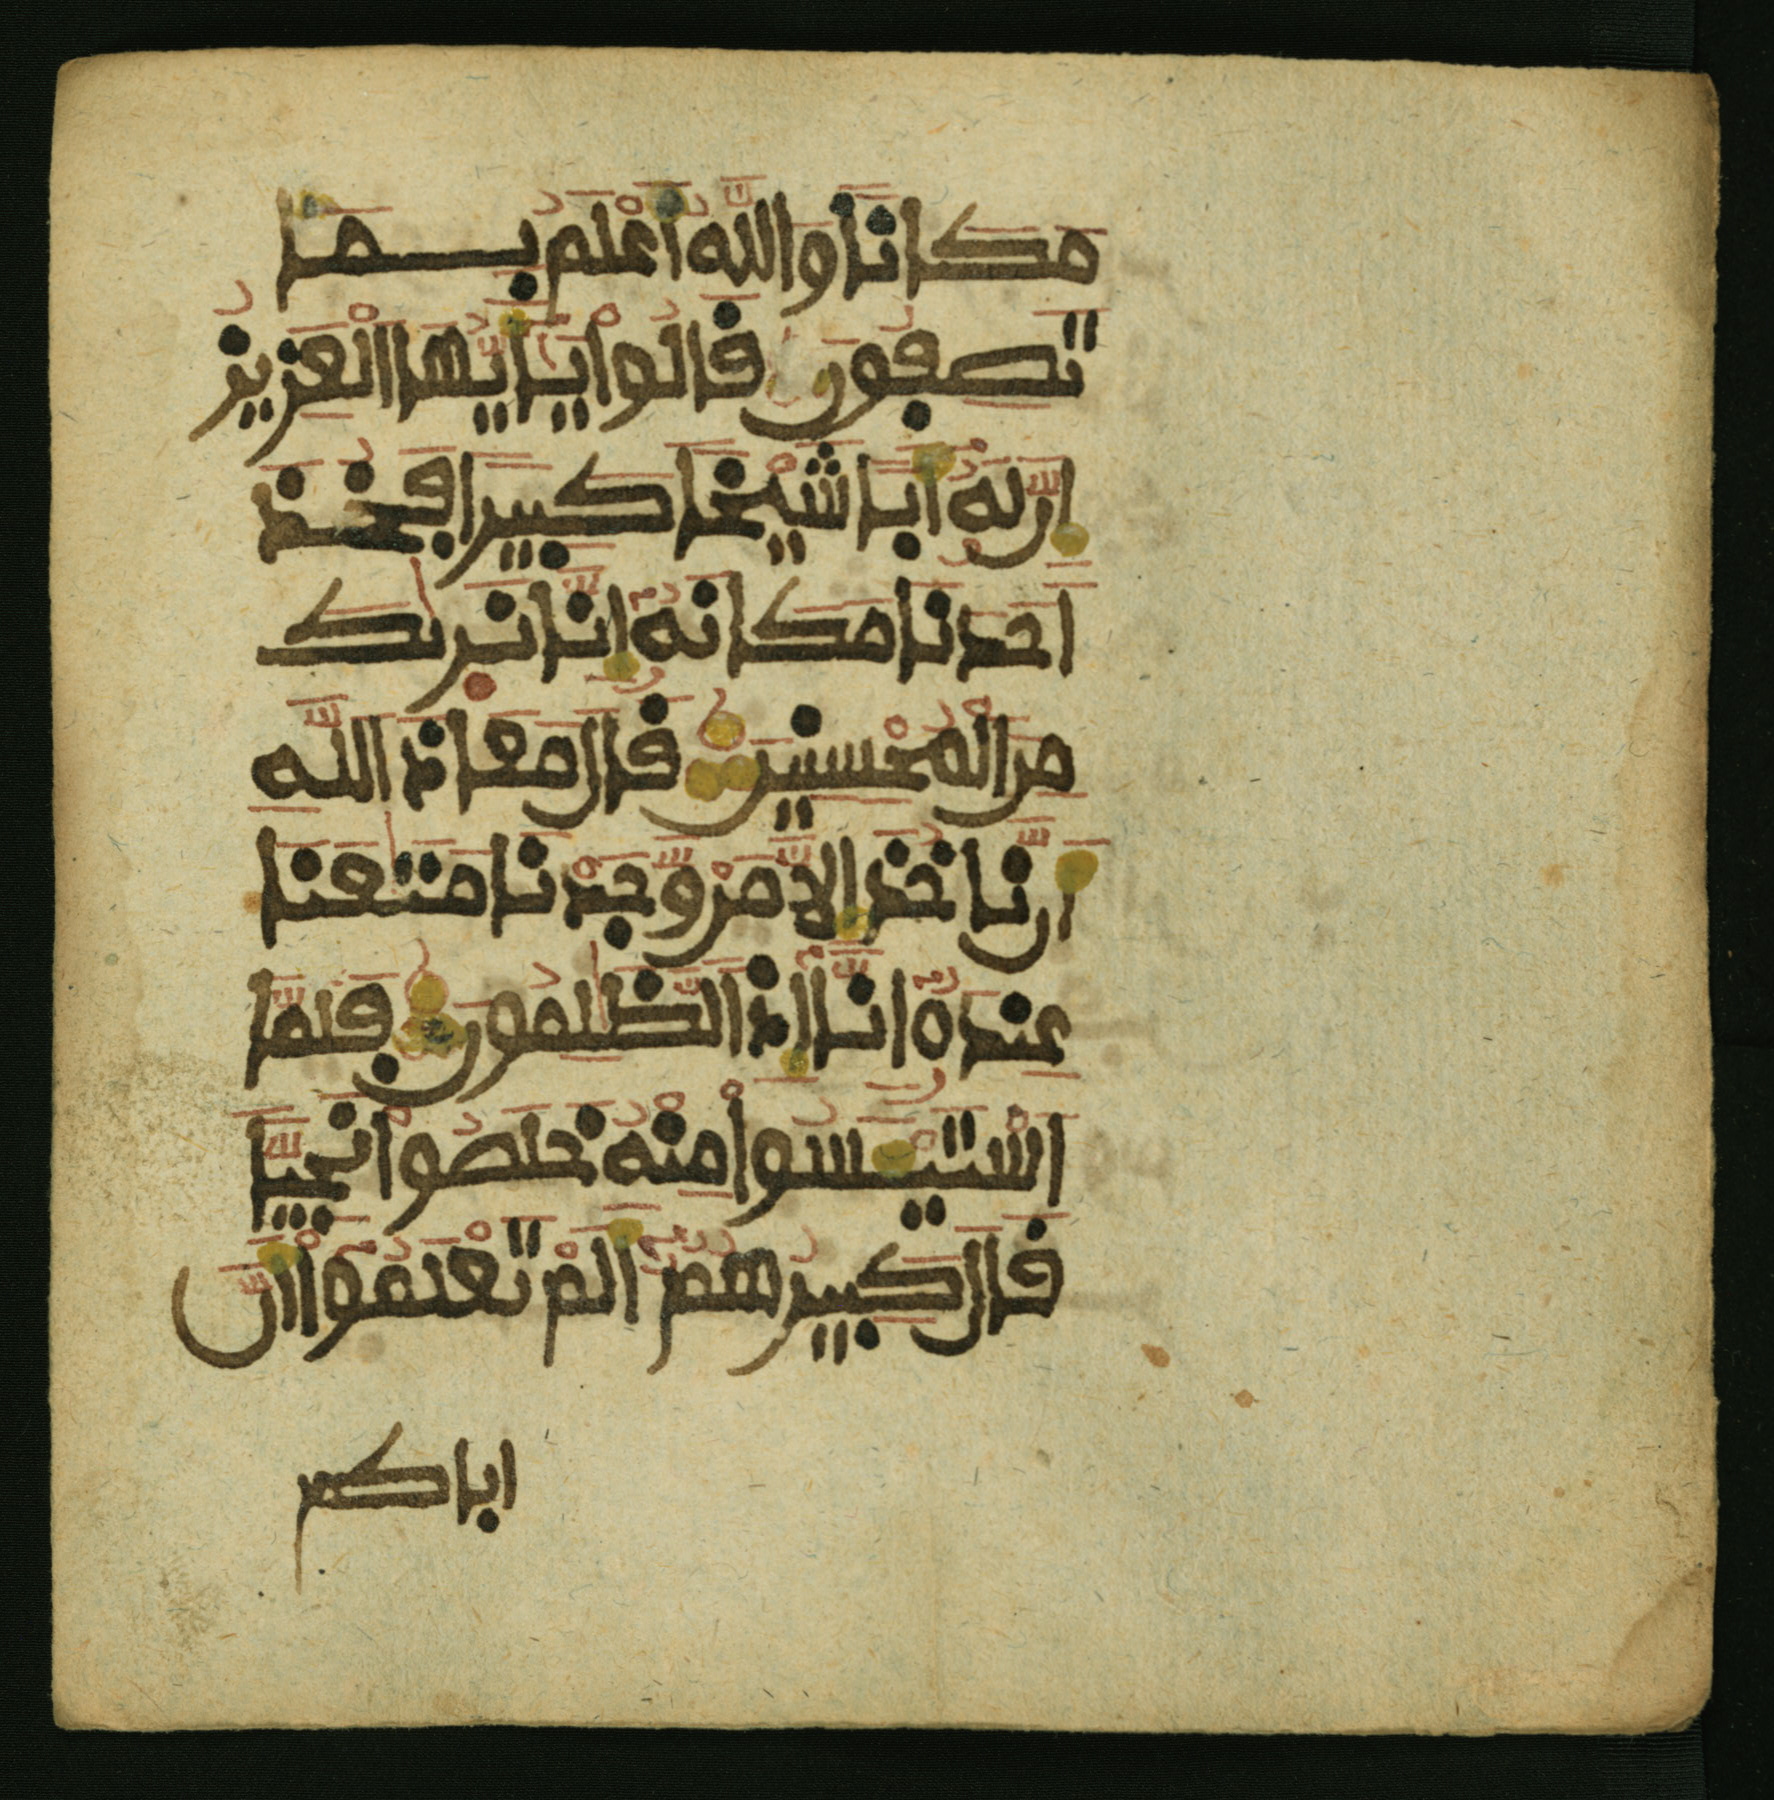 مَكَانًا وَاللَّهُ أَعْلَمُ بِمَا
تَصِفُونَ قَالُوا يَا أَيُّهَا الْعَزِيزُ
إِنَّ لَهُ أَبًا شَيْخًا كَبِيرًا فَخُذْ
أَحَدَنَا مَكَانَهُ إِنَّا نَرَىٰكَ
مِنَ الْمُحْسِنِينَ قَالَ مَعَاذَ اللَّهِ
أَن نَّاخُذَ إِلَّا مَن وَّجَدْنَا مَتَٰعَنَا
عِندَهُ إِنَّا إِذًا لَّظَٰلِمُونَ فَلَمَّا
اسْتَيْـَٔسُوا مِنْهُ خَلَصُوا نَجِيًّا
قَالَ كَبِيرُهُمْ أَلَمْ تَعْلَمُوا أَنَّ
اباكم